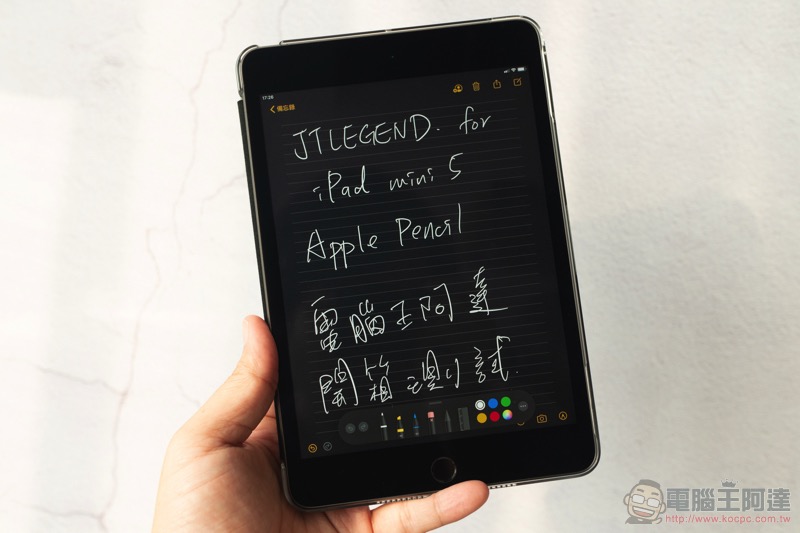 17:26
備忘錄
JTLEGEND. for
iPad mini 5
Apple Pencil
電腦王阿達
開箱現測試.
電腦王阿達
http://www.kocpc.com.tw